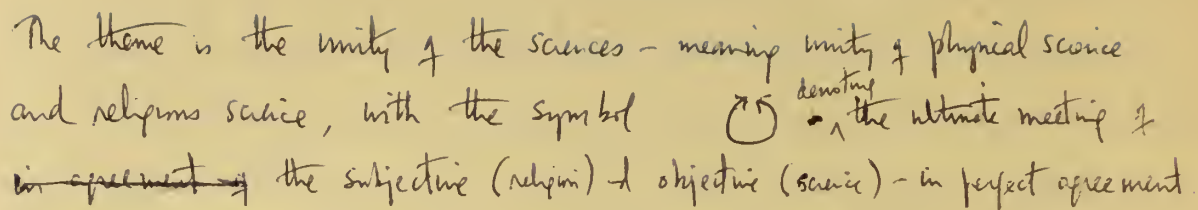 The theme is the unity of the sciences – meaning unity of physical science
and religious science, with the symbol denoting the ultimate meeting of
in agreement of the subjective (religion) & objective (science) – in perfect agreement.